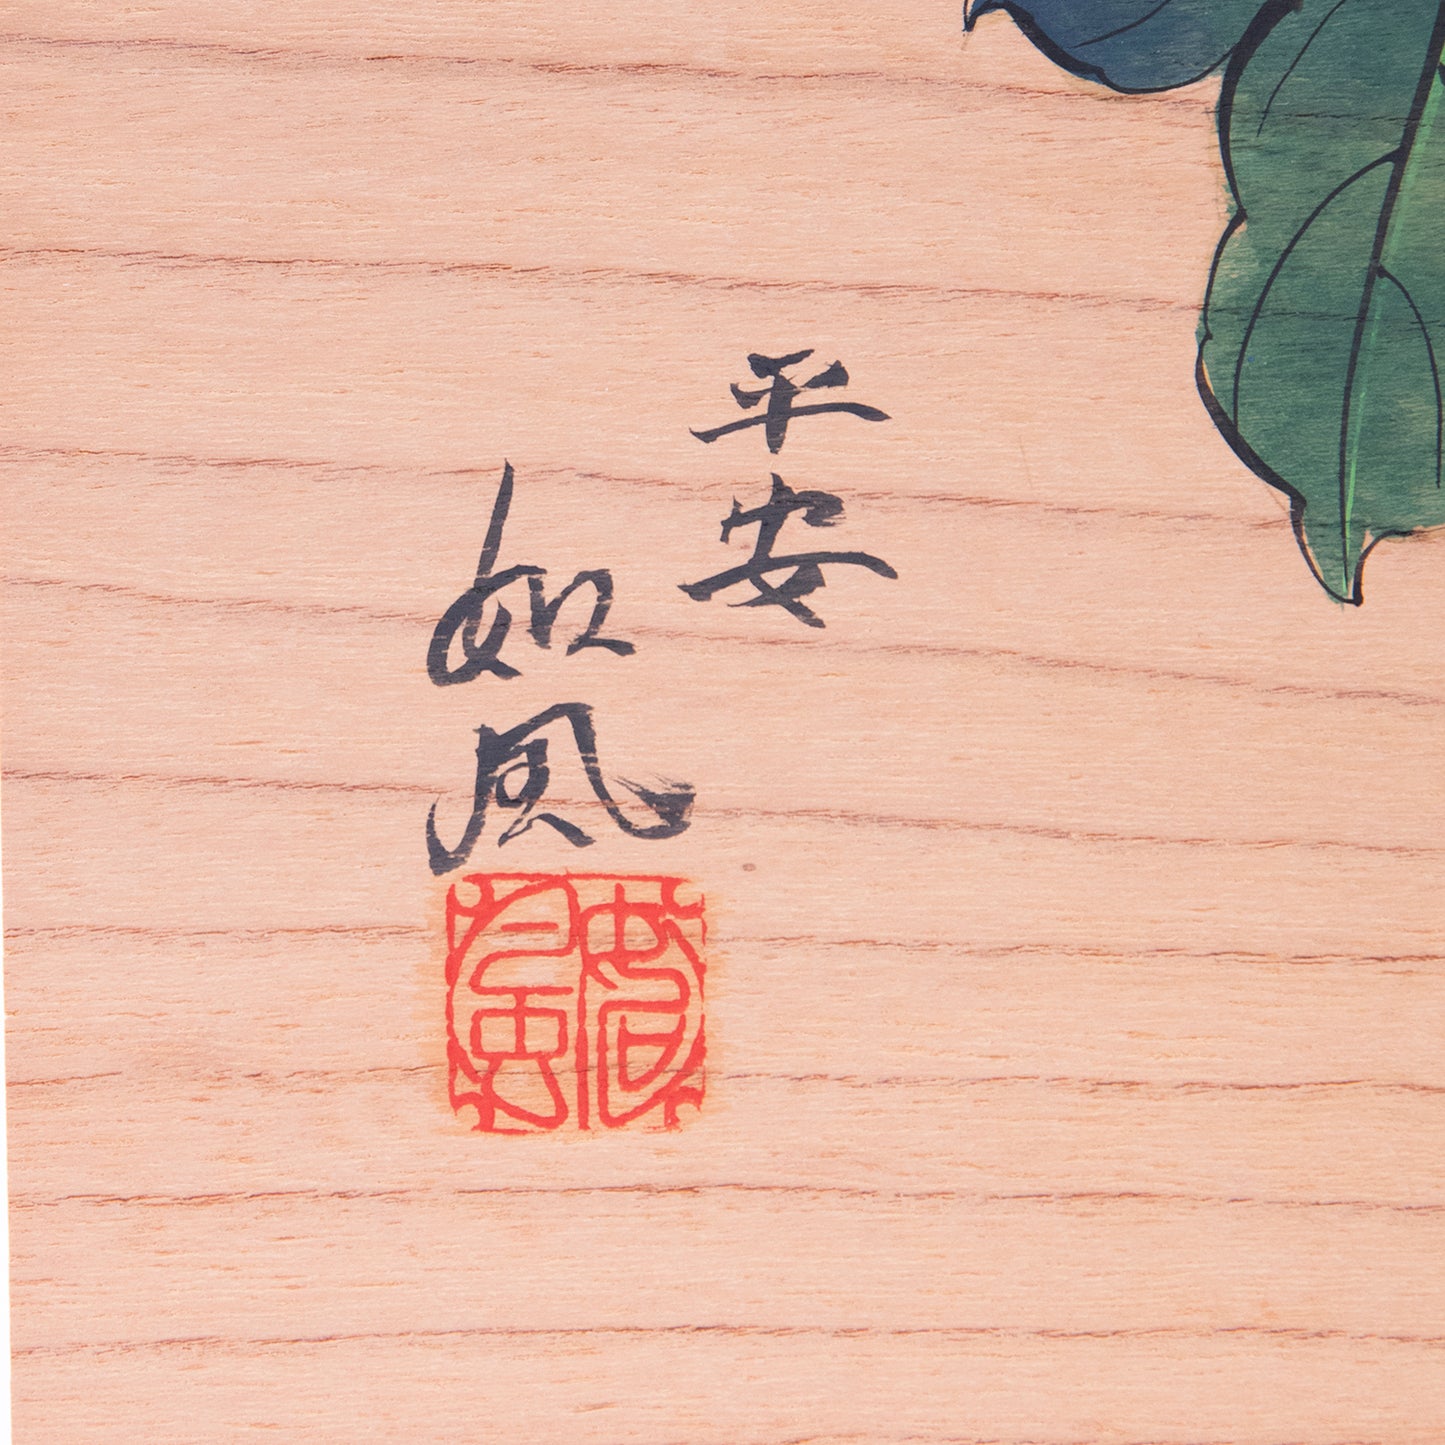 平安
如風